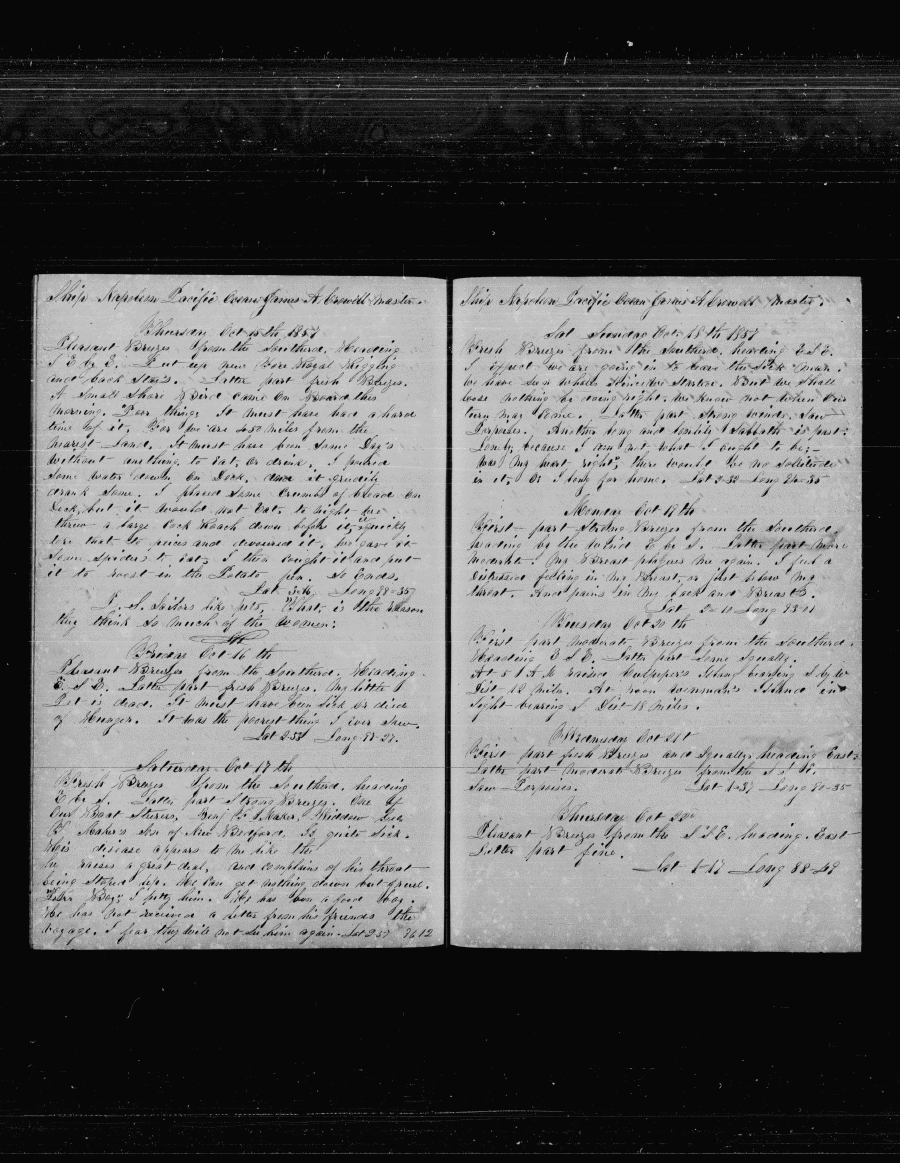 Ship Napoleon Pacific Ocean James A. Crowell Master.
Thursday Oct 15th 1857
Pleasant Breezes from the Southerd. Heading
S E by E. Put up new Fore Royal Rigging
and back Stays. Latter part fresh Breezes.
A Small Shore Bird came on Board this
morning. Poor thing; It must have had a hard
time of it, For we are 450 miles from the
nearest Land. It must have been Some Day's
without anything to Eat, or drink. I poured
Some water down on Deck, and it greedily
drank Some. I placed Some Crumbs of Bread on
Deck, but it would not Eat. to night we
threw a large Cock Roach down before it, it quickly
tore that to peices and devoured it. We gave it
Some Spiders to Eat. I then caught it and put
it to roost in the Potato pen. So Ends.
Lat 3-16 Long 98-35
P. S. Sailors like pets, What is the reason
they think so much of the women:
Friday Oct 16th
Pleasant Breezes from the Southerd. Heading
E. S. E. Latter part fresh Breezes. My little
Pet is dead. It must have been Sick or died
of Hunger. It was the poorest thing I ever saw.
Lat 2-53 Long 97-27.
Saturday Oct 17th
Fresh Breezes from the Southerd, heading
E by S. Latter part Strong Breezes. One of
Our Boat Sterers, Benj F Maker, Widdow Geo
F. Maker's Son of New Bedford. Is quite Sick.
His disease appears to me like the
he raises a great deal, and complains of his throat
being Stoped up. He can get nothing down but gruel.
Poor Boy; I pitty him. He has been a good boy.
He has not received a letter from his friends the
voyage. I fear they will not see him again. Lat 2 57 96 12
Ship Napoleon Pacific Ocean James A Crowell Master.
Sat Sunday Oct. 18th 1857
Fresh Breezes from the Southerd, heading E S E.
I expect we are going in to leave the Sick man.
We have Seen whales Since we Started. But we shall
loose nothing by doing right. we know not when Our
turn may Come. Latter part Strong winds. Saw
Porpoises. Another long and lonely Sabbath is past:
Lonely because I am not what I ought to be;—
was my heart right, there would be no sollitude
in it. O! I long for home. Lat 2-32 Long 94-35
Monday Oct 19th
First part Strong Breezes from the Southerd,
heading by the wind E by S. Latter part more
moderate. My Breast plagues me again. I feel a
distressed feeling in my Breast, or just below my
throat. And pains in my back and Breast.
Lat 2-10 Long 93-01
Tuesday Oct 20th
First part moderate Breezes from the Southerd.
Heading E S E. Latter part Some Squally.
At 5 A M raised Culpeper's Island bearing S by W
Dist 12 miles. At noon Wenman's Island in
Sight bearing S Dist 18 miles.
Wednesday Oct 21st
First part fresh Breezes and Squally heading East:
Latter part moderate Breezes from the S S E.
Saw Porpoises. Lat 1-37 Long 90-35
Thursday Oct 22d
Pleasant Breezes from the S S E. heading East
Latter part fine.
Lat 1-17 Long 88-49